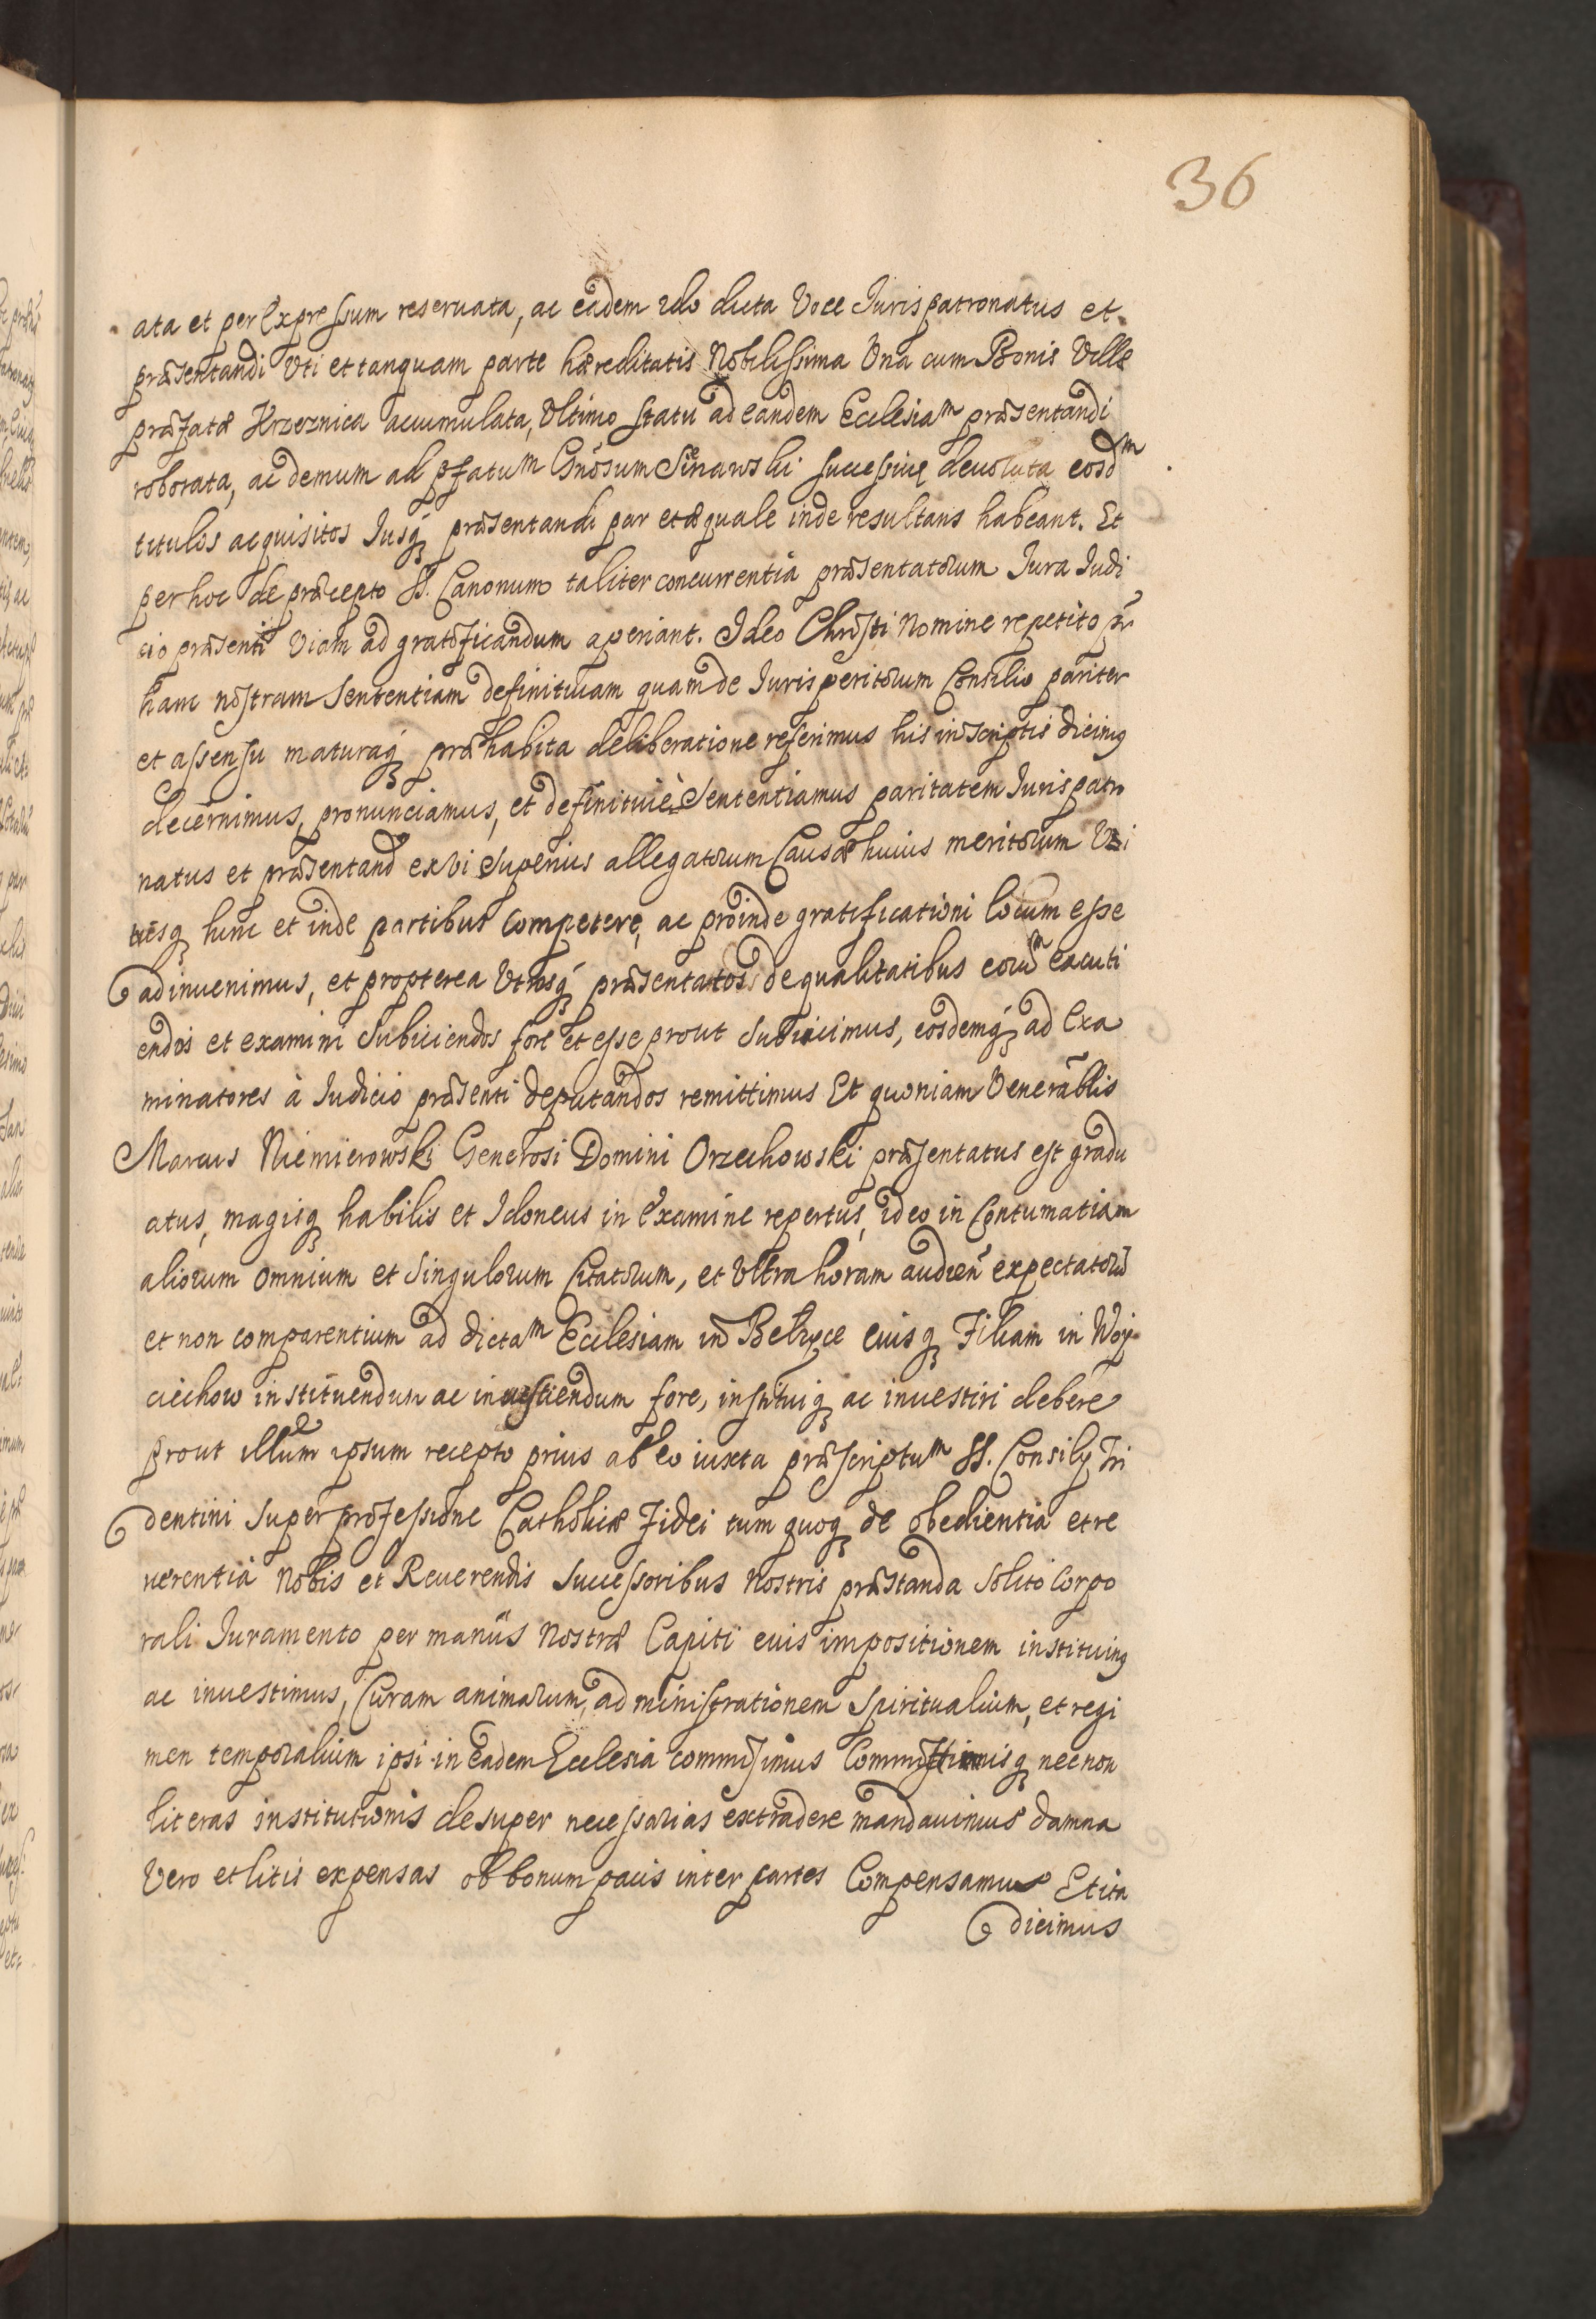 36
ata et per Expressum reseruata, ac eadem dicta Voce Jurispatronatus et
præsentandi Vti et tanquam parte hæreditatis Nobilissima Una cum Bonis Villæ
præfatæ Krzeznica accumulata, Ultimo statu ad eandem Ecclesiam præsentandi
roborata, ac demum ad pfatum Gnōsum Sienawski successiue deuoluta eosdm
titulos acquisitos Jusq præsentandi par et æquale inde resultans habeant. Et
per hoc de præcepto SS. Canonum taliter concurrentia præsentatorum Jura Judi
cio præsenti Viam ad gratificandum aperiant. Ideo Christi Nomine repetito pr
hanc nostram Sententiam definitiuam quam de Jurisperitorum Consilio pariter
et assensu maturaq præhabita deliberatione referimus his in Scriptis dicimus
decernimus, pronunciamus, et definitiuè Sententiamus paritatem Jurispatro
natus et præsentand ex Vi Superius allegatorum Causæ huius meritorum
hinc et inde partibus Competere, ac proinde gratificationi locum esse
adinuenimus, et propterea Vtrosq præsentatos de qualitatibus eorum excuti
endos et examini Subiiciendos fore et esse prout Subiicimus, eosdemq ad Exa
minatores à Judicio præsenti deputandos remittimus Et quoniam Venerablis
Marcus Niemierowski Generosi Domini Orzechowski præsentatus est gradu
atus, magisq habilis et Idoneus in Examine repertus, ideo in Contumatiam
aliorum omnium et Singulorum Citatorum, et Vltra horam audien expectatorū
et non comparentium ad dictam Ecclesiam in Belzyce eiusq Filiam in Woy
ciechow instituendum ac inuestiendum fore, instituiq ac inuestiri debere
prout illum ipsum recepto prius ab eo iuxta præscriptum SS. Consilÿ Tri
dentini Super professione Catholicæ Fidei tum quoq de obedientia et re
uerentia Nobis et Reuerendis Successoribus Nostris præstanda Solito Corpo
rali Juramento per manus Nostræ Capiti euis impositionem instituimus
ac inuestimus, Curam animarum, administrationem Spiritualium, et regi
men temporalium ipsi in Eadem Ecclesia commisimus Committimusq necnon
literas institutionis desuper necessarias extradere mandauimus damna
Vero et litis expensas ob bonum pacis inter partes Compensamus Et ita
dicimus